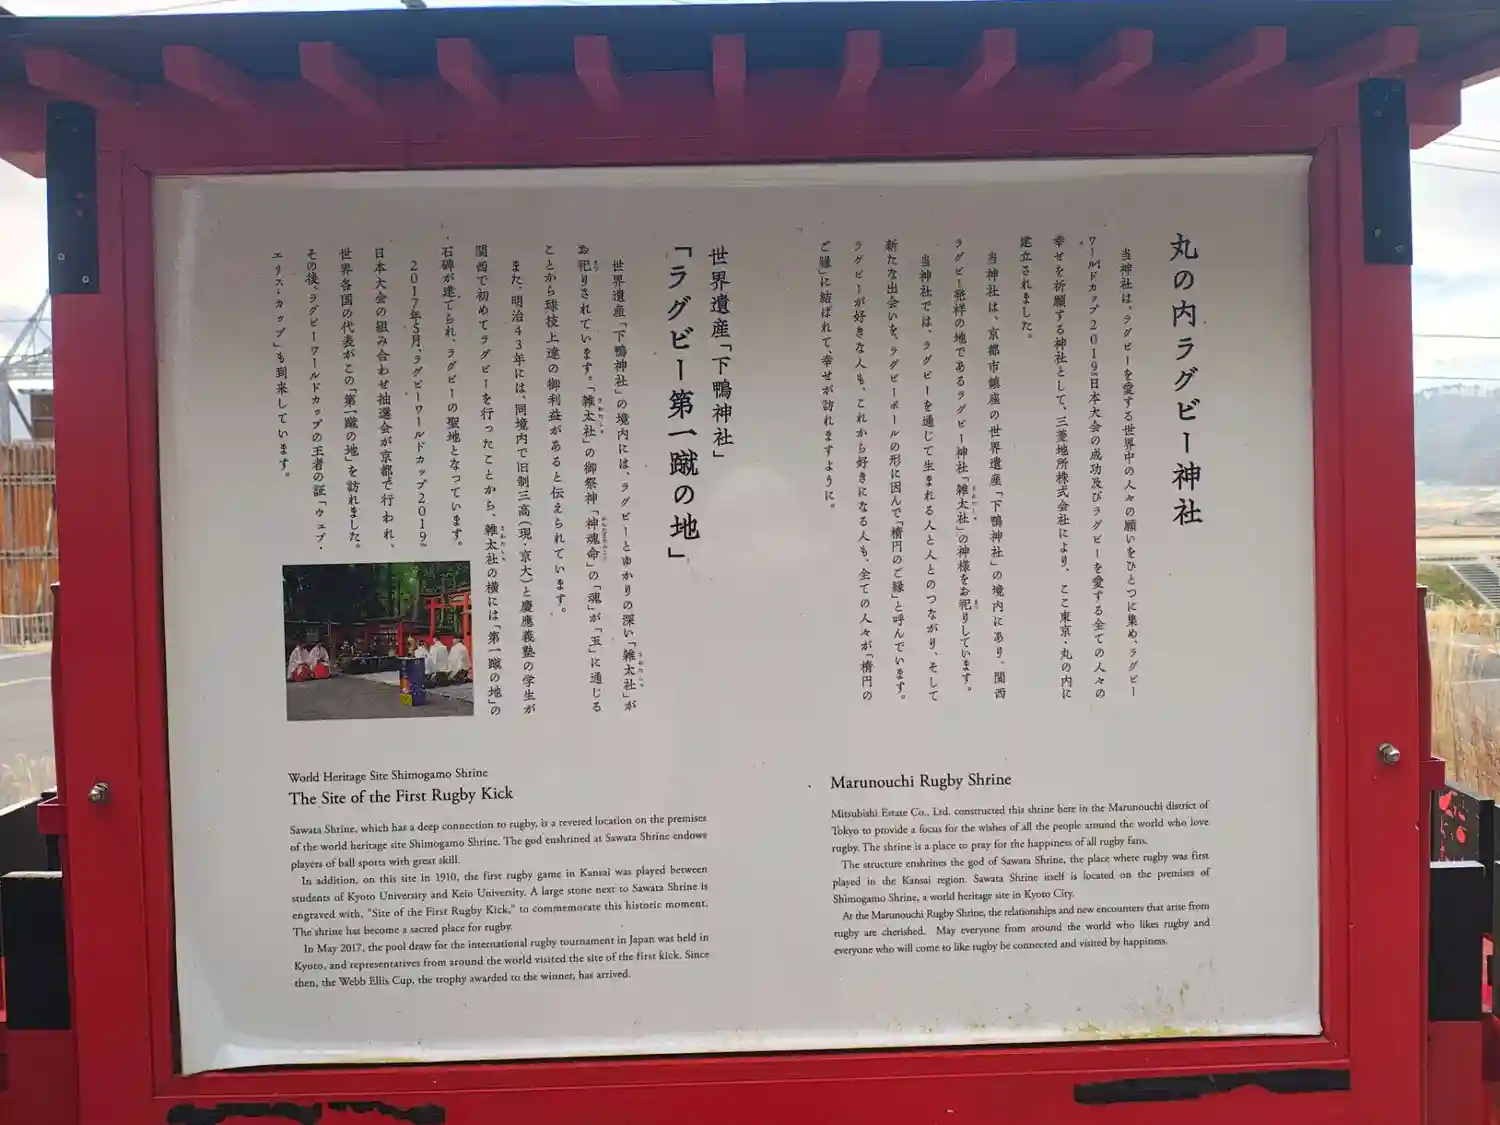 丸の内ラグビー神社
当神社は、ラグビーを愛する世界中の人々の願いをひとつに集め、ラグビー
ワールドカップ2019™日本大会の成功及びラグビーを愛する全ての人々の
幸せを祈願する神社として、三菱地所株式会社により、ここ東京・丸の内に
建立されました。
当神社は、京都市鎮座の世界遺産「下鴨神社」の境内にあり、関西
ラグビー発祥の地であるラグビー神社「雑太社」の神様をお祀りしています。
当神社では、ラグビーを通じて生まれる人と人とのつながり、そして
新たな出会いを、ラグビーボールの形に因んで「楕円のご縁」と呼んでいます。
ラグビーが好きな人も、これから好きになる人も、全ての人々が「楕円の
ご縁」に結ばれて、幸せが訪れますように。
世界遺産「下鴨神社」
「ラグビー第一蹴の地」
世界遺産「下鴨神社」の境内には、ラグビーとゆかりの深い「雑太社」が
お祀りされています。「雑太社」の御祭神「神魂命」の「魂」が「玉」に通じる
ことから球技上達の御利益があると伝えられています。
また、明治43年には、同境内で旧制三高(現・京大)と慶應義塾の学生が
関西で初めてラグビーを行ったことから、雑太社の横には「第一蹴の地」の
石碑が建てられ、ラグビーの聖地となっています。
2017年5月、ラグビーワールドカップ2019™
日本大会の組み合わせ抽選会が京都で行われ、
世界各国の代表がこの「第一蹴の地」を訪れました。
その後、ラグビーワールドカップの王者の証「ウェブ・
エリス・カップ」も到来しています。
World Heritage Site Shimogamo Shrine
The Site of the First Rugby Kick
Sawata Shrine, which has a deep connection to rugby, is a revered location on the premises
of the world heritage site Shimogamo Shrine. The god enshrined at Sawata Shrine endows
players of ball sports with great skill.
In addition, on this site in 1910, the first rugby game in Kansai was played between
students of Kyoto University and Keio University. A large stone next to Sawata Shrine is
engraved with, "Site of the First Rugby Kick," to commemorate this historic moment.
The shrine has become a sacred place for rugby.
In May 2017, the pool draw for the international rugby tournament in Japan was held in
Kyoto, and representatives from around the world visited the site of the first kick. Since
then, the Webb Ellis Cup, the trophy awarded to the winner, has arrived.
Marunouchi Rugby Shrine
Mitsubishi Estate Co., Ltd. constructed this shrine here in the Marunouchi district of
Tokyo to provide a focus for the wishes of all the people around the world who love
rugby. The shrine is a place to pray for the happiness of all rugby fans.
The structure enshrines the god of Sawara Shrine, the place where rugby was first
played in the Kansai region. Sawata Shrine itself is located on the premises of
Shimogamo Shrine, a world heritage site in Kyoto City.
At the Marunouchi Rugby Shrine, the relationships and new encounters that arise from
rugby are cherished. May everyone from around the world who likes rugby and
everyone who will come to like rugby be connected and visited by happiness.